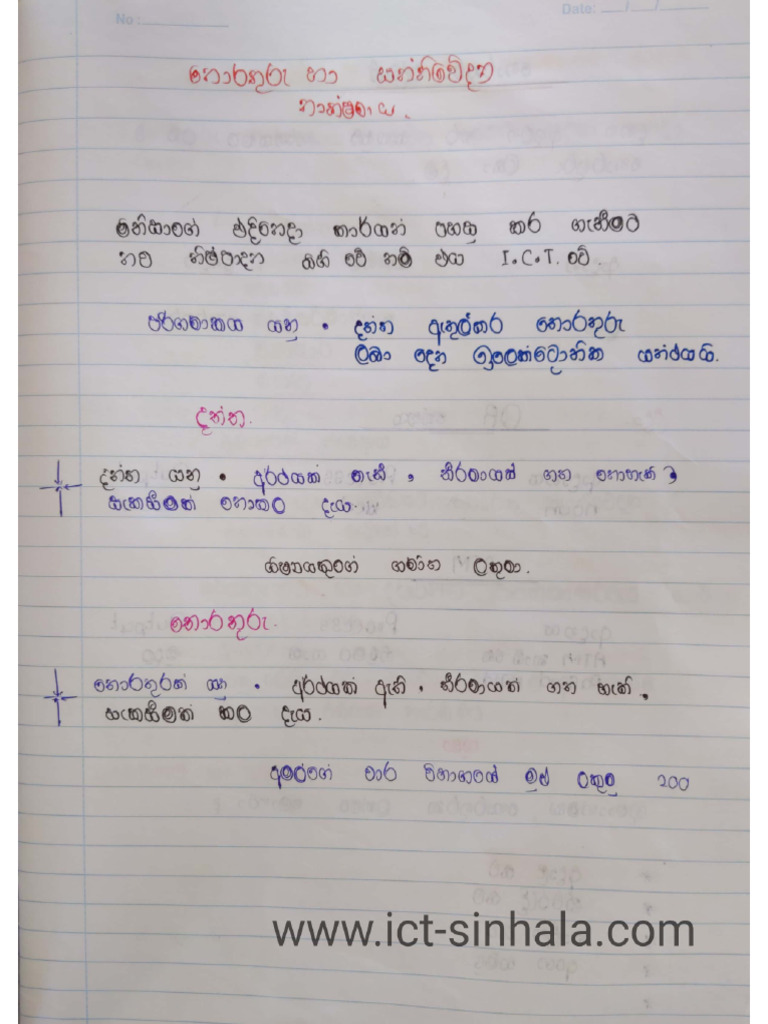 No :
Date: / /
තොරතුරු හා සන්නිවේදන
තාක්ෂණය.
මනිසාගේ එදිනෙදා කාර්යන් පහසු කර ගැනීමට
නව නිෂ්පාදන බිහි වේ නම් එය I.C.T. වේ.
පරිගණකය යනු . දත්ත ඇතුල්කර තොරතුරු
ලබා දෙන ඉලෙක්ට්‍රොනික යන්ත්‍රයයි.
දත්ත.
දත්ත යනු . අර්ථයක් නැති , තීරණයක් ගත නොහැකි ,
සැකසීමක් නොකල දැය.
ශිෂ්‍යයකුගේ ගණිත ලකුණ.
තොරතුරු.
තොරතුරක් යනු . අර්ථයක් ඇති . තීරණයක් ගත හැකි .
සැකසීමක් කල දැය.
අමරගේ වාර විභාගයේ මුළු ලකුණු 200
www.ict-sinhala.com